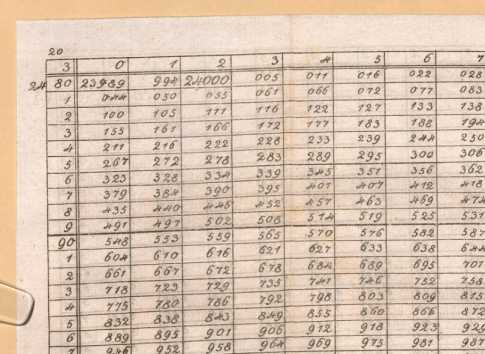 20
3 0 1 2 3 4 5 6 7
24 80 23989 994 24000 005 011 016 022 028
1 044 050 055 061 066 072 077 083
2 100 105 111 116 122 127 133 138
3 155 161 166 172 177 183 188 194
4 211 216 222 228 233 239 244 250
5 267 272 278 283 289 295 300 306
6 323 328 334 339 345 351 356 362
7 379 384 390 395 401 407 412 418
8 435 440 446 452 457 463 469 474
9 491 497 502 508 514 519 525 531
90 548 553 559 565 570 576 582 587
1 604 610 616 621 627 633 638 644
2 661 667 672 678 684 689 695 701
3 718 723 729 735 741 746 752 758
4 775 780 786 792 798 803 809 815
5 832 838 843 849 855 860 866 872
6 889 895 901 906 912 918 923 929
7 946 952 958 964 969 975 981 987